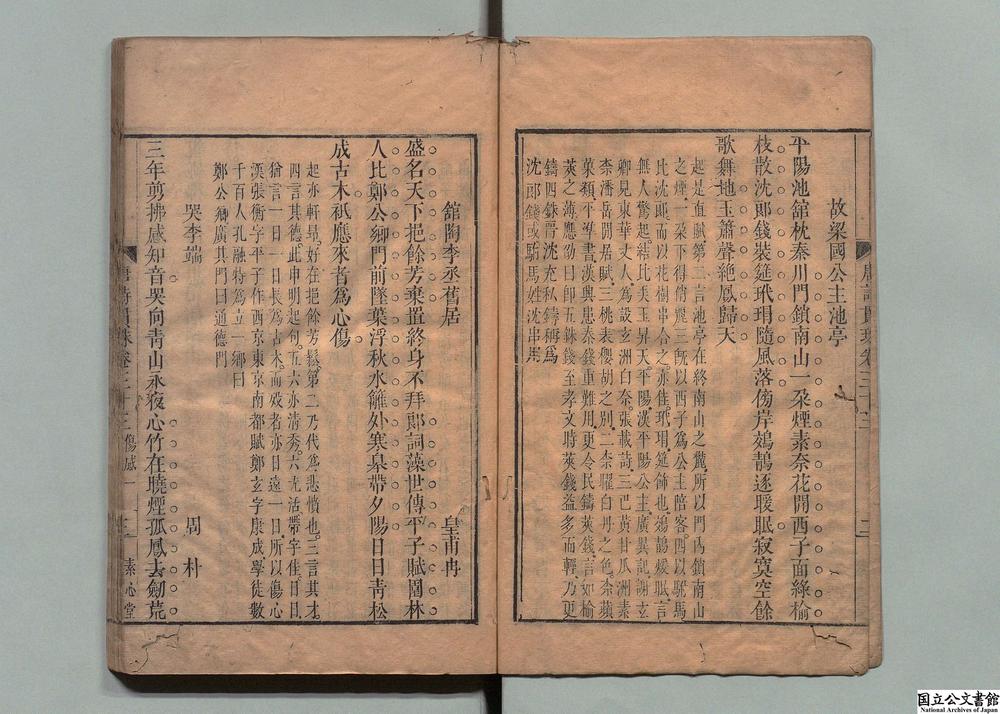 故梁國公主池亭
平陽池舘枕秦川門鎖南山一朶煙素奈花開西子面綠榆
枝散沈郎錢裝筵玳瑁隨風落傍岸鵁鶄逐暖眠寂寞空餘
歌舞地玉簫聲絕鳳歸天
起是直賦第二言池亭在終南山之麓所以門內鎖南山
之煙一朶下得倩麗三句以西子爲公主陪客四以駙馬
比沈郎而以花樹串合之亦佳玳瑁筵飾也鵁鶄煖眠言
無人驚起結比美玉昇天平陽漢平陽公主廣異記謝玄
卿見東華丈人爲設玄洲白奈張載詩三巴黃甘瓜洲素
柰潘岳閒居賦三桃表櫻胡之別二柰曜白丹之色柰蘋
菓類平準書漢興患秦錢重難用更令民鑄莢錢言如榆
莢之薄應劭曰即五銖錢至孝文時莢錢益多而輕乃更
鑄四銖晉沈充私鑄稱爲
沈郎錢或駙馬姓沈串用
舘陶李丞舊居
皇甫冉
盛名天下挹餘芳棄置終身不拜郎詞藻世傳平子賦園林
人比鄭公鄉門前墜葉浮秋水籬外寒臯帶夕陽日日靑松
成古木祇應來者爲心傷
起亦軒昂好在挹餘芳鬆第二乃代爲悲憤也三言其才
四言其德此申明起句五六亦淸秀六尤活帶字佳日日
猶言一日一日長爲古木而感者亦日遠一日所以傷心
漢張衡字平子作西京東京南都賦鄭玄字康成學徒數
千百人孔融特爲立一鄉曰
鄭公鄉廣其門曰通德門
哭李端
周朴
三年剪拂感知音哭向靑山永夜心竹在曉煙孤鳳去劒荒
傷感一
三
素心堂
国立公文書館
National Archives of Japan